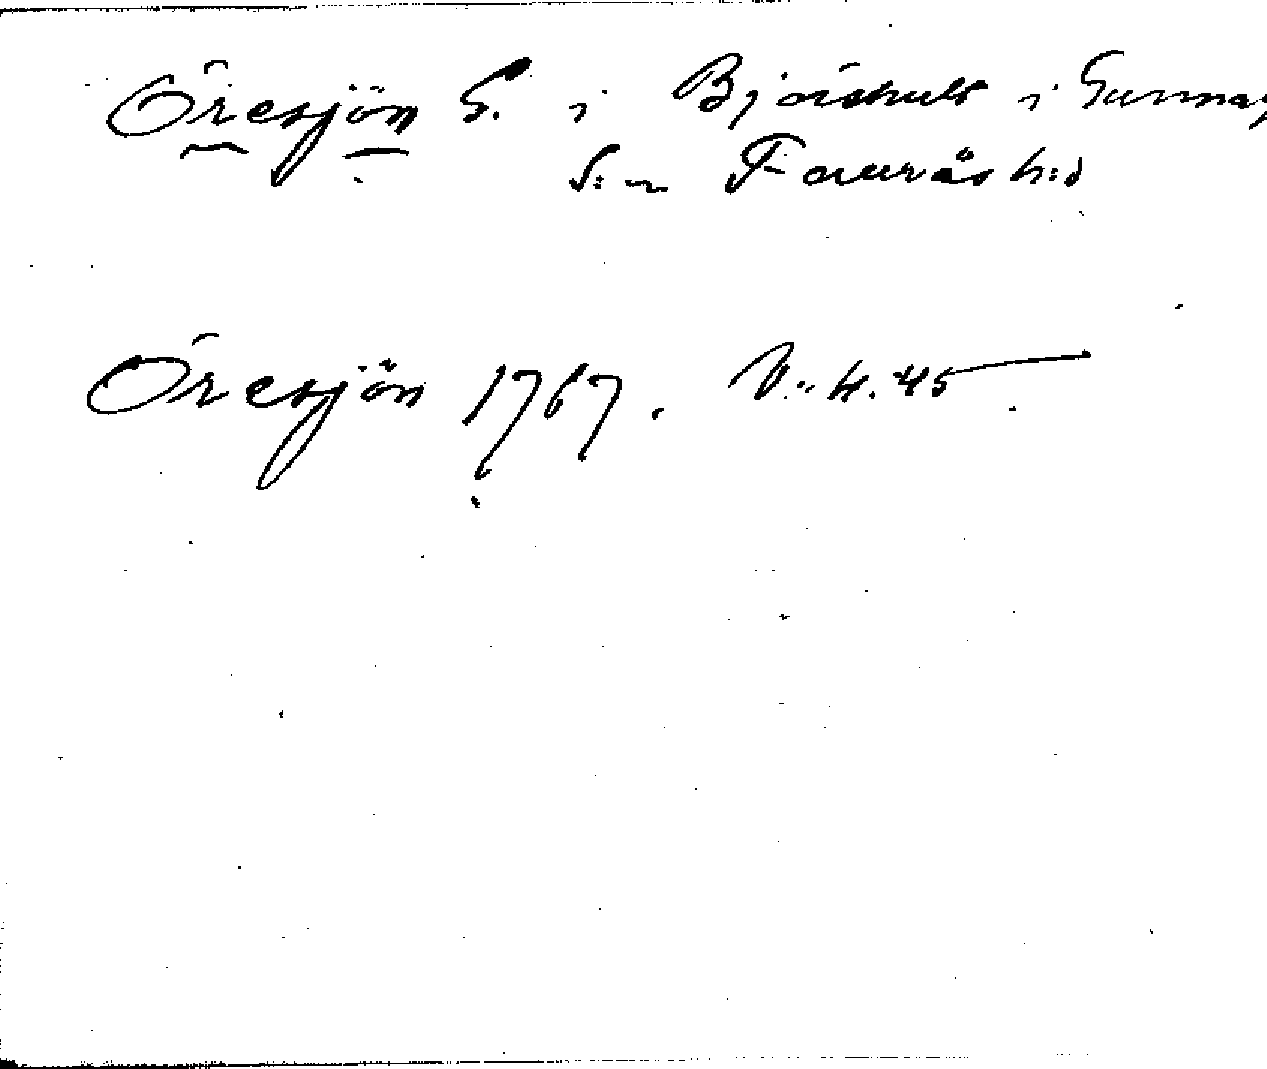 Öresjön S. i Björshult i Gunnar
S:n Fauråsh:d
Öresjön 1767. V:4.45